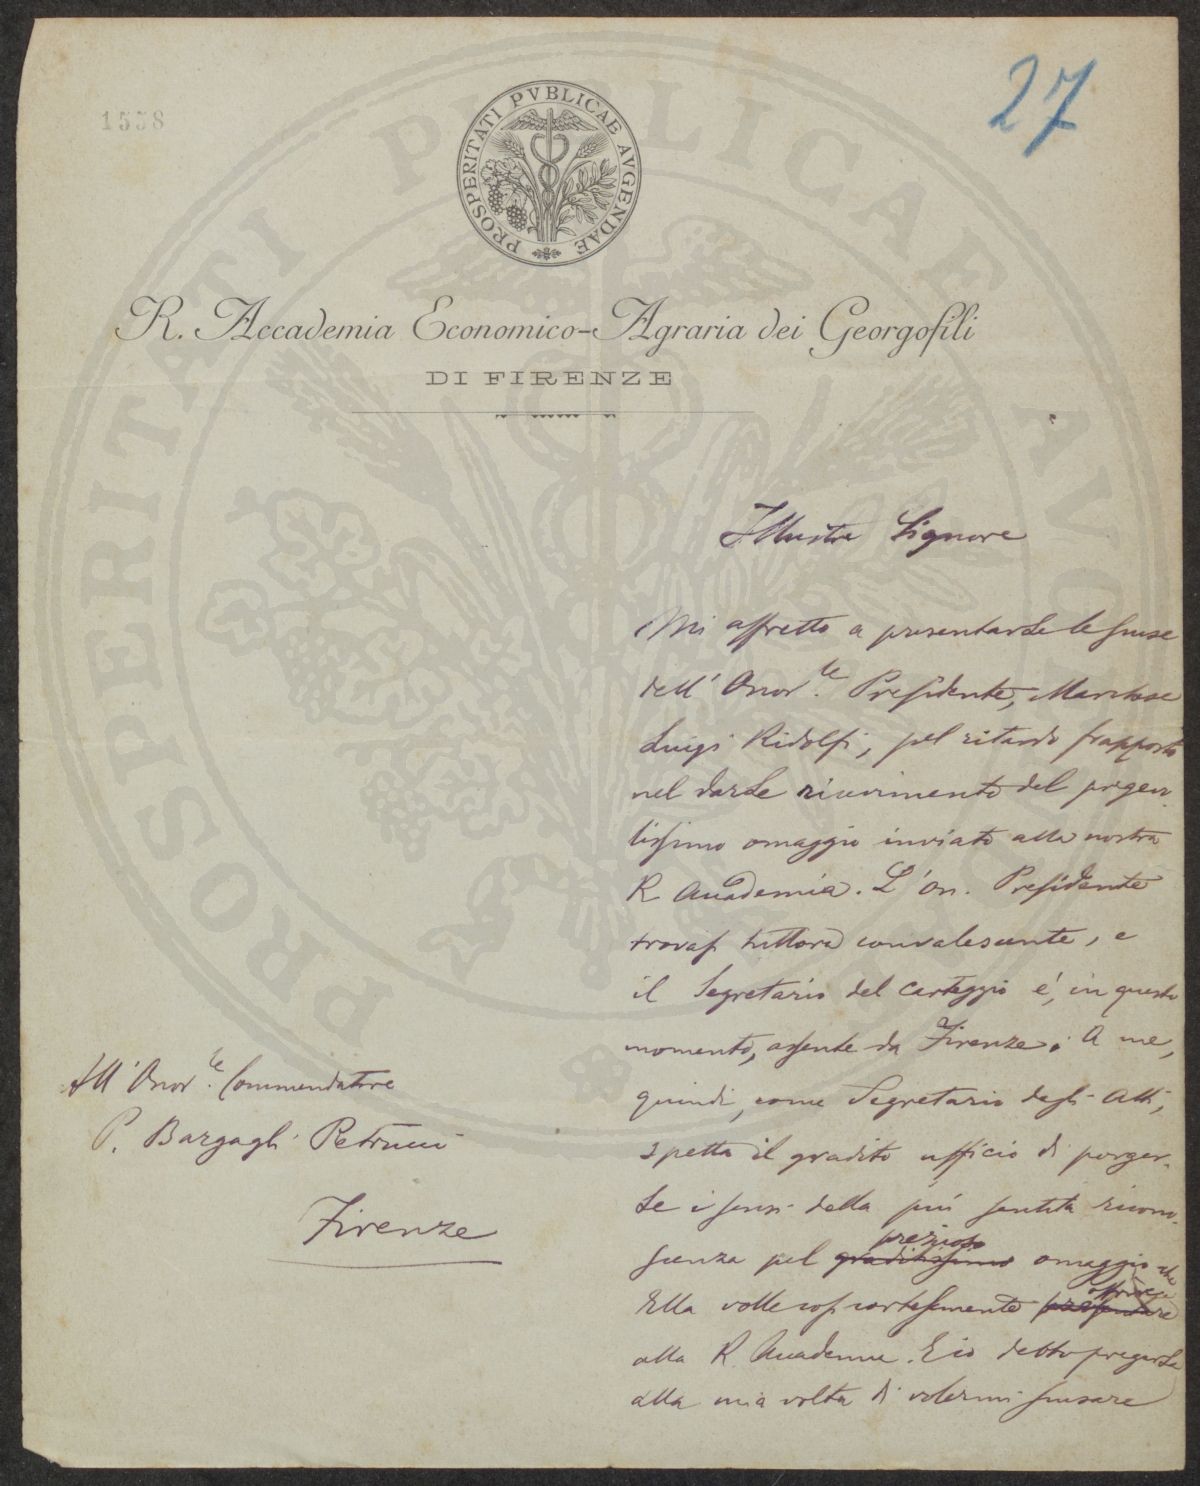 27
1558
PROSPERITATI PVBLICAE AVGENDAE
R. Accademia Economico-Agraria dei Georgofili
DI FIRENZE
Illustre Signore
Mi affretto a presentarLe le scuse
dell' Onor.le Presidente, Marchese
Luigi Ridolfi, pel ritardo frapposto
nel darLe ricevimento del pregev-
tissimo omaggio inviato alla nostra
R Accademia. L'on. Presidente
trovasi tuttora convalescente, e
il Segretario del carteggio è, in questo
momento, assente da Firenze. A me,
quindi, come Segretario degli Atti,
spetta il gradito ufficio di porger-
Le i sensi della più sentita ricono-
scenza pel graditissimo prezioso omaggio che
Ella volle così cortesemente presentare offrire
alla R. Accademia. E io debbo pregarLa
alla mia volta di volermi scusare
All' Onor.le Commendatore
P. Bargagli Petrucci
Firenze